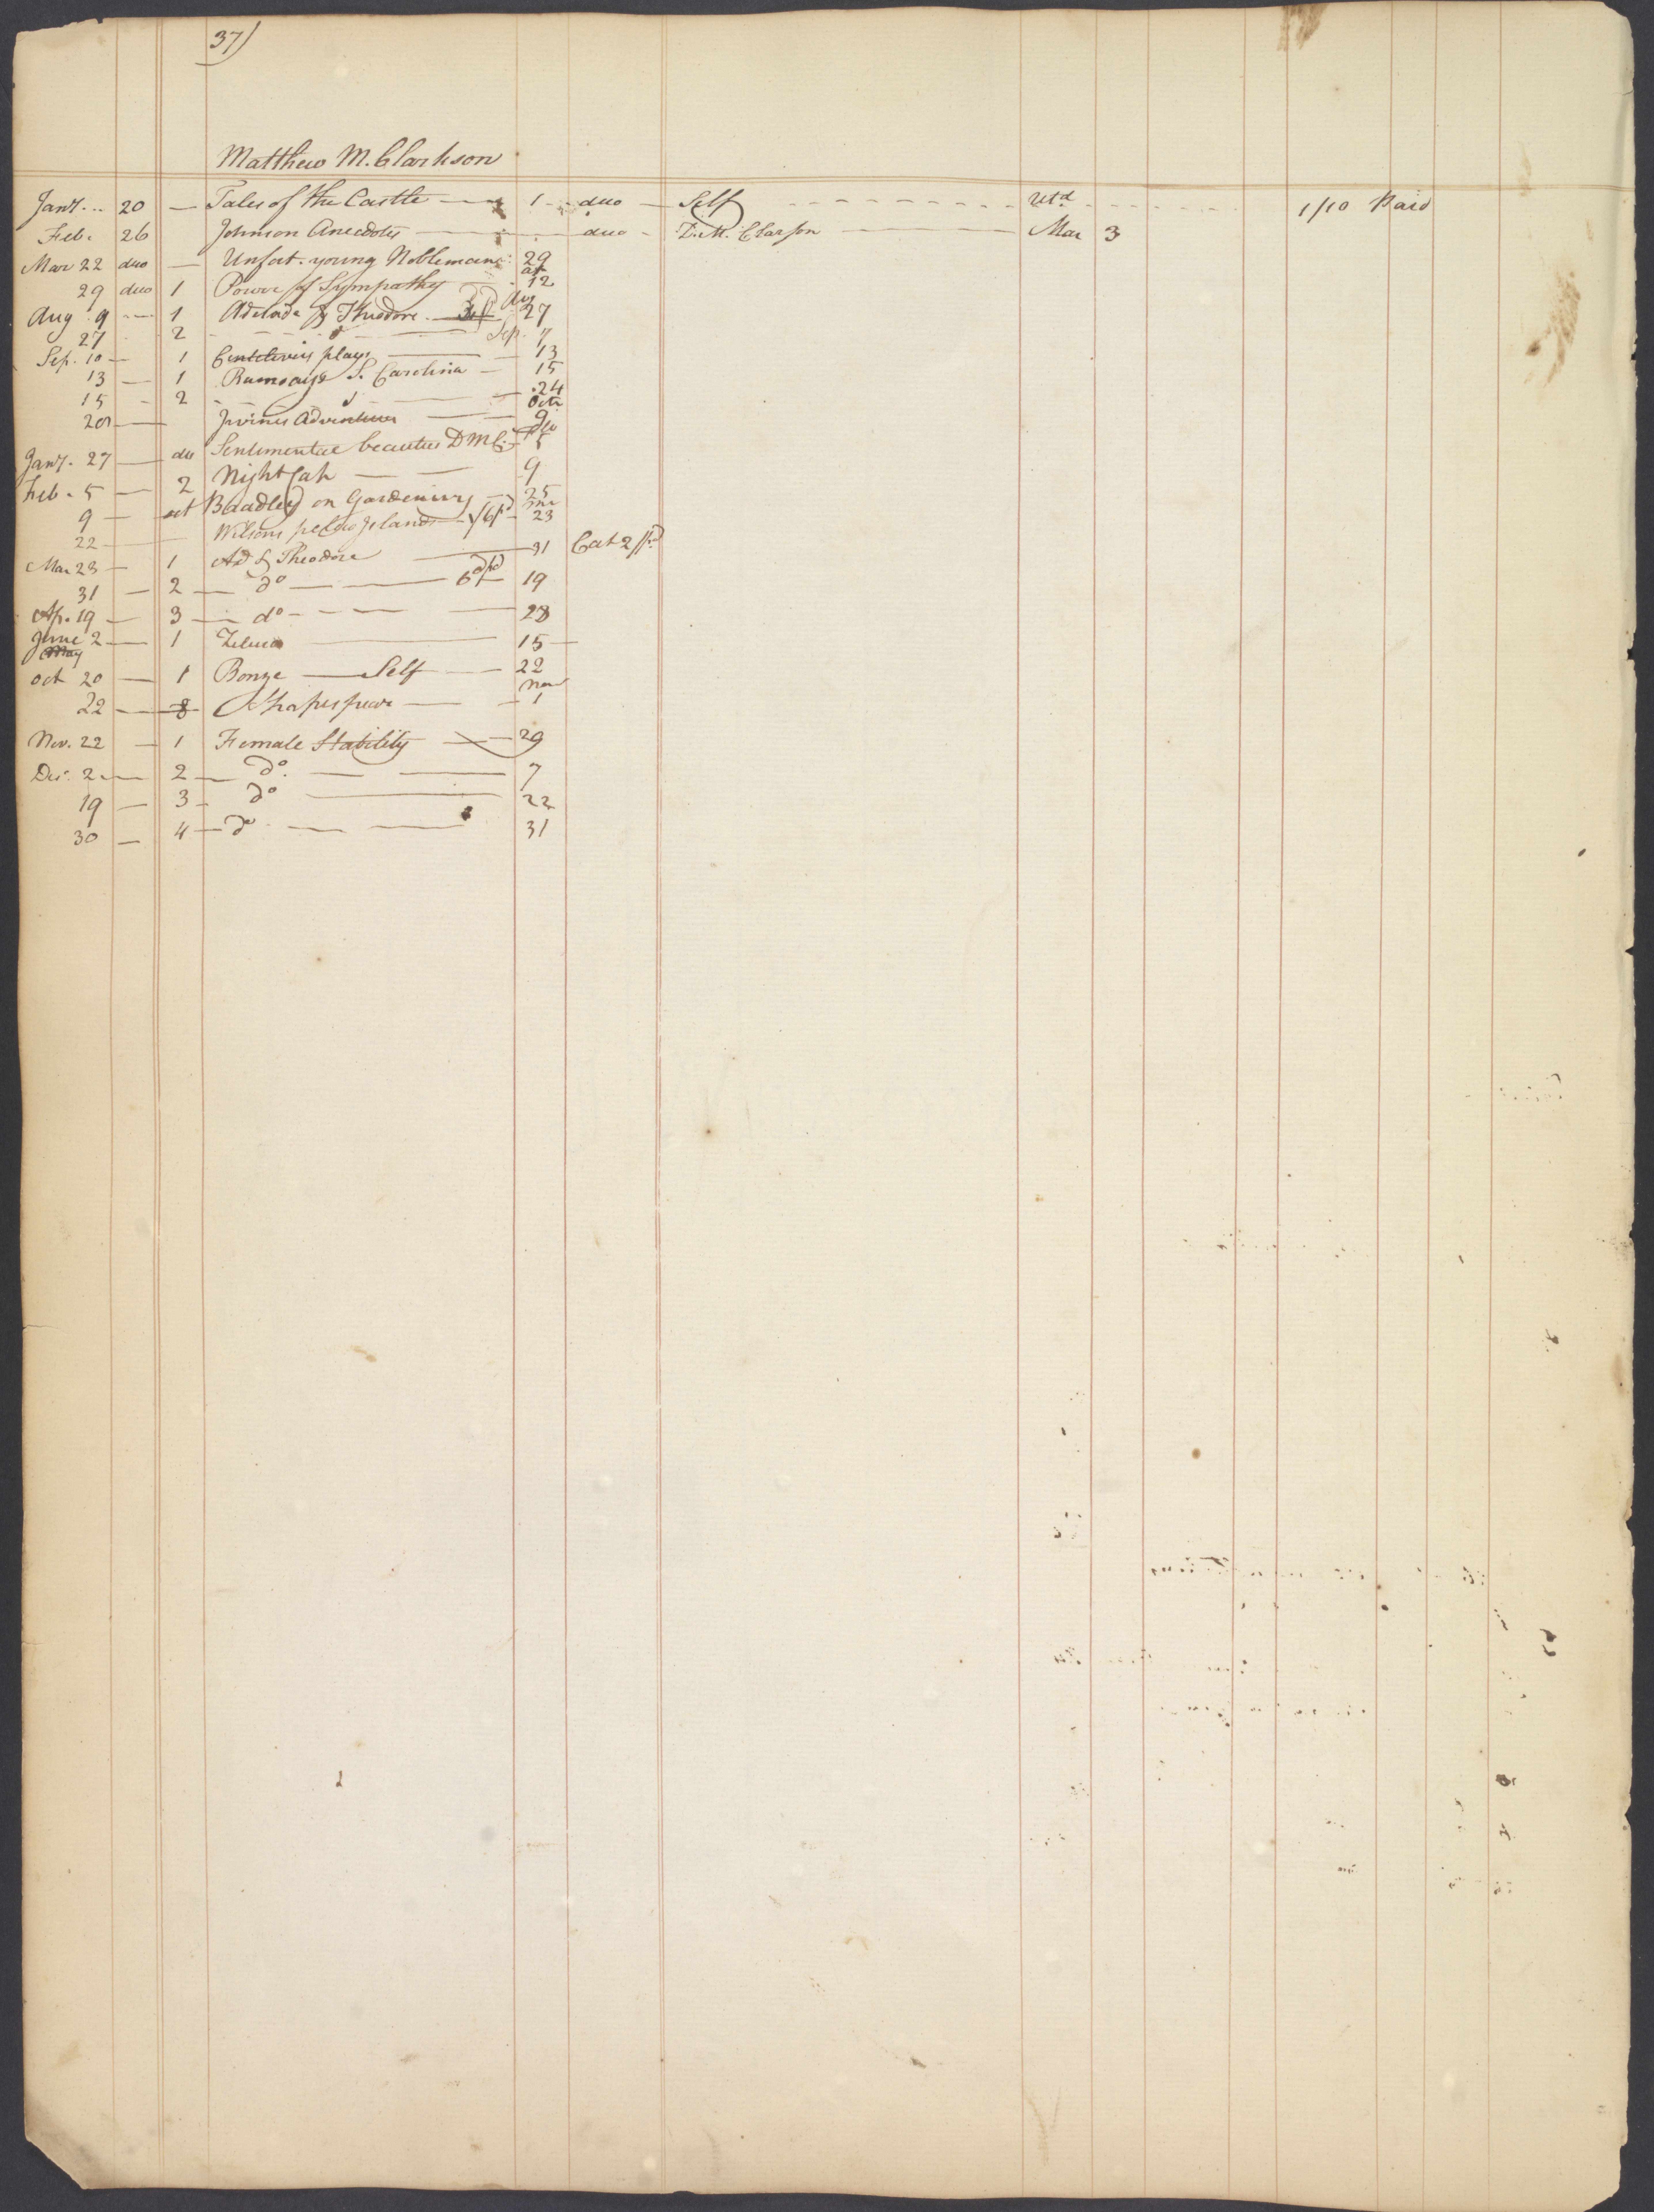 37)
Matthew M. Clarkson
Jany. 20 — Tales of the Castle — 1 — duo — Self - - - Retd - - - 1/10 Paid
Feb. 26 Johnson Anecdotes — duo - D. M. Clarkson — Mar 3
Mar 22 duo — Unfort. young Nobleman 29
29 duo 1 Power of Sympathy — ap 12
Aug 9 — 1 Adelade & Theodore — Aug 27
27 2 — do — Sep. 7
Sep. 10 — 1 Centilivers plays — 13
13 — 1 Ramsays S. Carolina — 15
15 - 2 — do — 24
20 — Irvines Adventures — Octr 9
Jany. 27 — duo Sentimental beauties D M C — Feb 5
Feb. 5 — 2 Night Cap — 9
9 — oct Bradley on Gardening — 25
22 — Wilsons pelew Islands — /6 pd — Mar 23
Mar 23 — 1 Ad & Theodore — 31 Cat 2/ pd
31 — 2 — do — 6d pd — 19
Ap. 19 — 3 — do - - — 28
June 2 — 1 Zeluco — 15 —
May
Oct 20 — 1 Bonze — Self — 22
22 — 8 Shakespear — Nov 1
Nov. 22 — 1 Female Stability — 29
Dec. 2 — 2 — do. — 7
19 — 3 - do — 22
30 — 4 — do — 31